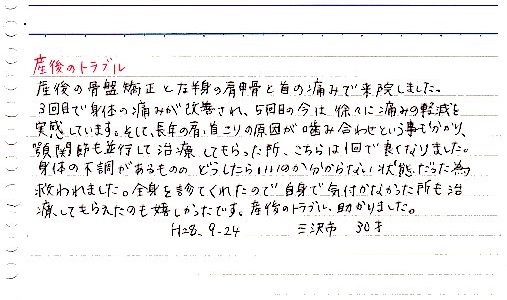 産後のトラブル
産後の骨盤矯正と左半身の肩甲骨と首の痛みで来院しました。
3回目で身体の痛みが改善され、5回目の今は徐々に痛みの軽減を
実感しています。そして、長年の肩、首こりの原因が噛み合わせという事も分かり、
顎関節も並行して治療してもらった所、こちらは1回で良くなりました。
身体の不調があるものの どうしたらいいのか分からない状態だった為
救われました。全身を診てくれたので自身で気付かなかった所も治
療してもらえたのも嬉しかったです。産後のトラブル、助かりました。
H28.9-24 三沢市 30才